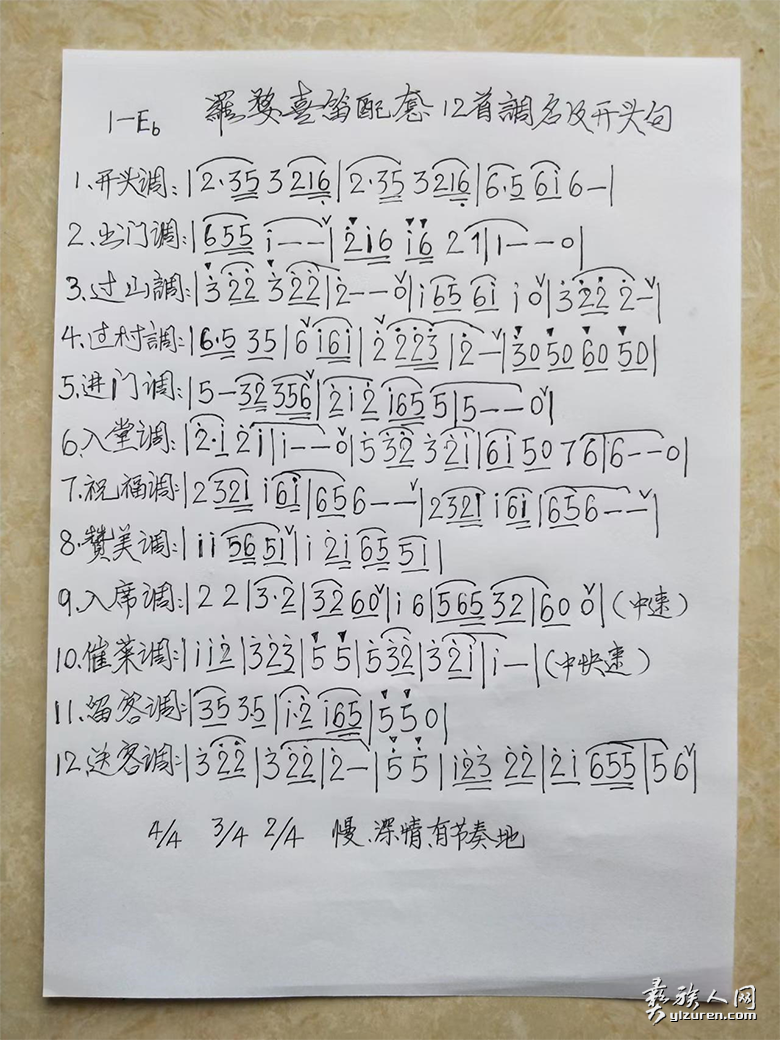 1=E♭ 羅婺喜笛配套12首調名及开头句
1、开头调:|2·35 3 216|2·35 3 216|6·5 6i 6—|
2、出门调:|655 i——|2i6 i6 21|1——0|
3、过山調:|322 322|2——0|i65 6i i0|322 2—|
4、过村調:|6·5 35|6i6i|2223|2—|30 50 60 50|
5、进门调:|5—32 356|2i2 i65 5|5——0|
6、入堂调:|2·i 2i|i——0|532 32i|6i 50 76|6——0|
7、祝福调:|232i i6i|656 6——|232i i6i|656 6——|
8、赞美调:|ii 56 5i|i 2i 65 5i|
9、入席调:|22|3·2|32 60|i6|565 32|60 0|(中速)
10、催菜调:|ii2|323|55|532|32i|i—|(中快速)
11、留客调:|35 3·5|i·2 i65|550|
12、送客调:|322|322|2—|55|i23 22|2i 655|56|
4/4 3/4 2/4 慢、深情、有节奏地
彝族人网
yizuren.com